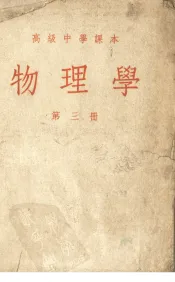 高級中學課本
物理學
第三冊